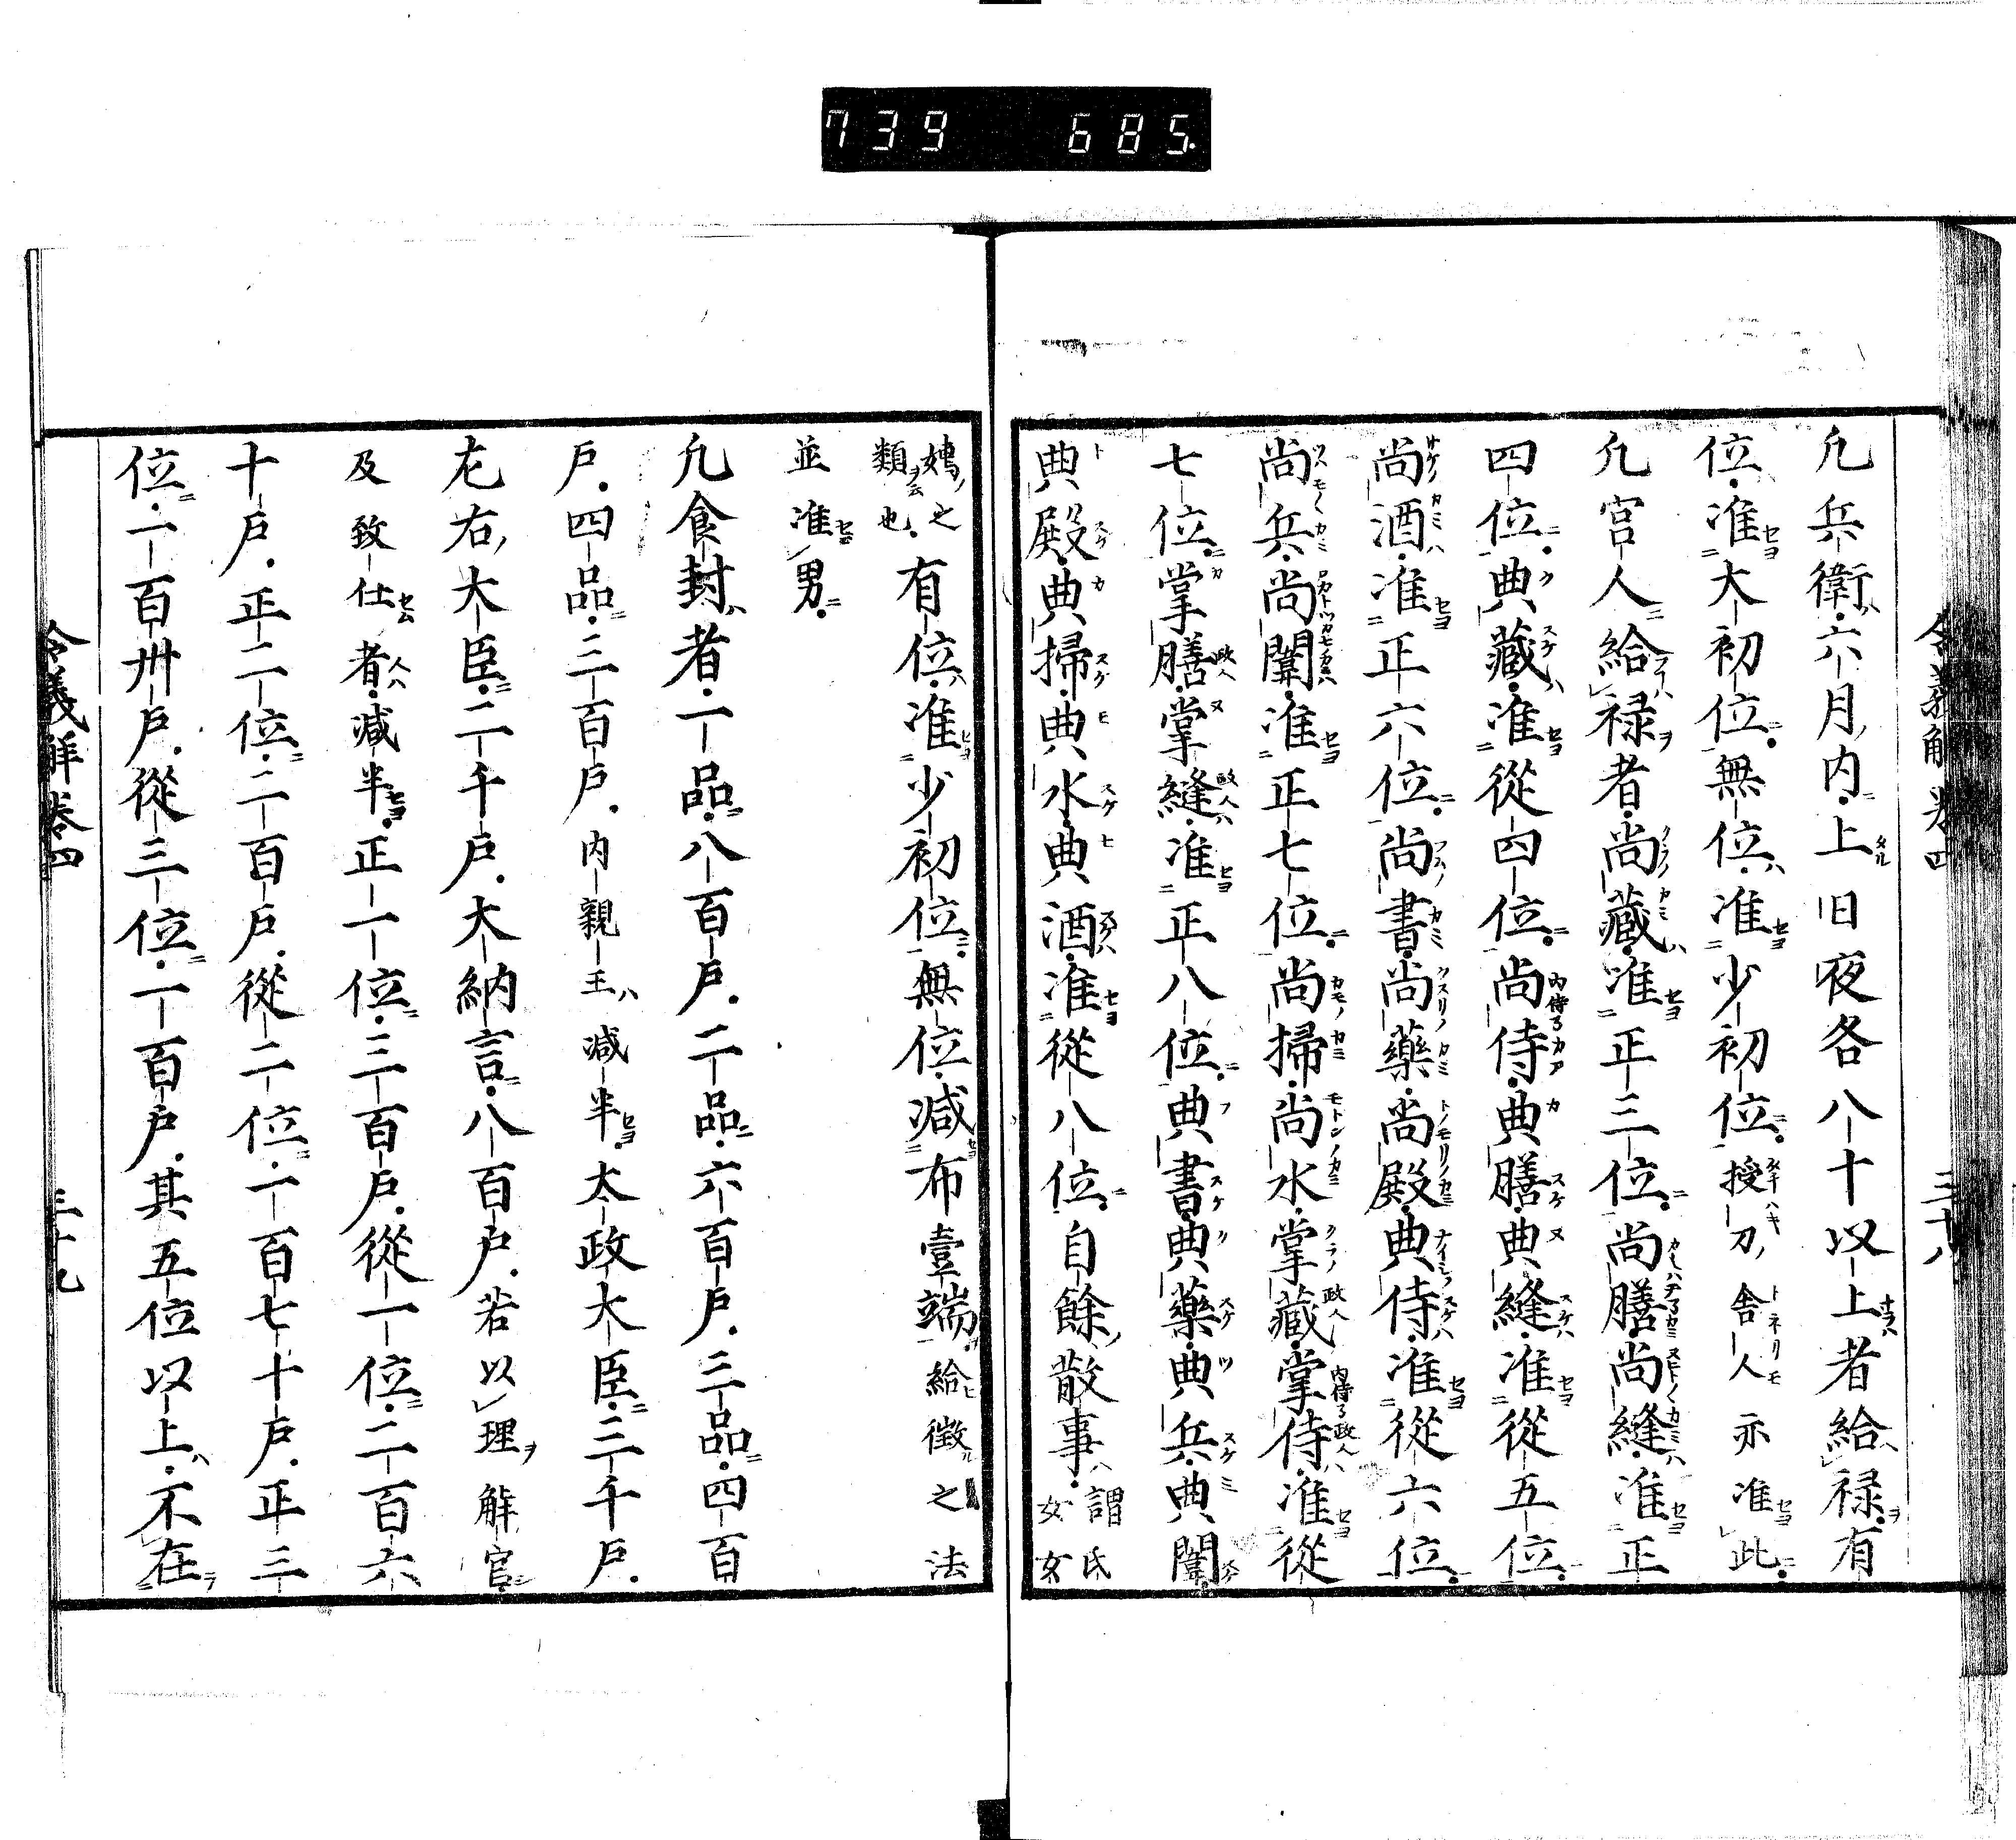 739 685.
令義解卷四 三十八
凢兵衛六月内上日夜各八十以上者給禄有
位准大初位無位准少初位授刀舎人亦准此
凢宮人給禄者尚藏准正三位尚膳尚縫准正
四位典藏准從四位尚侍典膳典縫准從五位
尚酒准正六位尚書尚藥尚殿典侍准從六位
尚兵尚闈准正七位尚掃尚水掌藏掌侍准從
七位掌膳掌縫准正八位典書典藥典兵典闈
典殿典掃典水典酒准從八位自餘散事謂氏
女女
嬬之
類也有位准少初位無位减布壹端給徴之法
並准男
凢食封者一品八百戸二品六百戸三品四百
戸四品三百戸内親王减半太政大臣三千戸
左右大臣二千戸大納言八百戸若以理解官
及致仕者减半正一位三百戸從一位二百六
十戸正二位二百戸從二位一百七十戸正三
位一百卅戸從三位一百戸其五位以上不在
令義解卷四 三十九